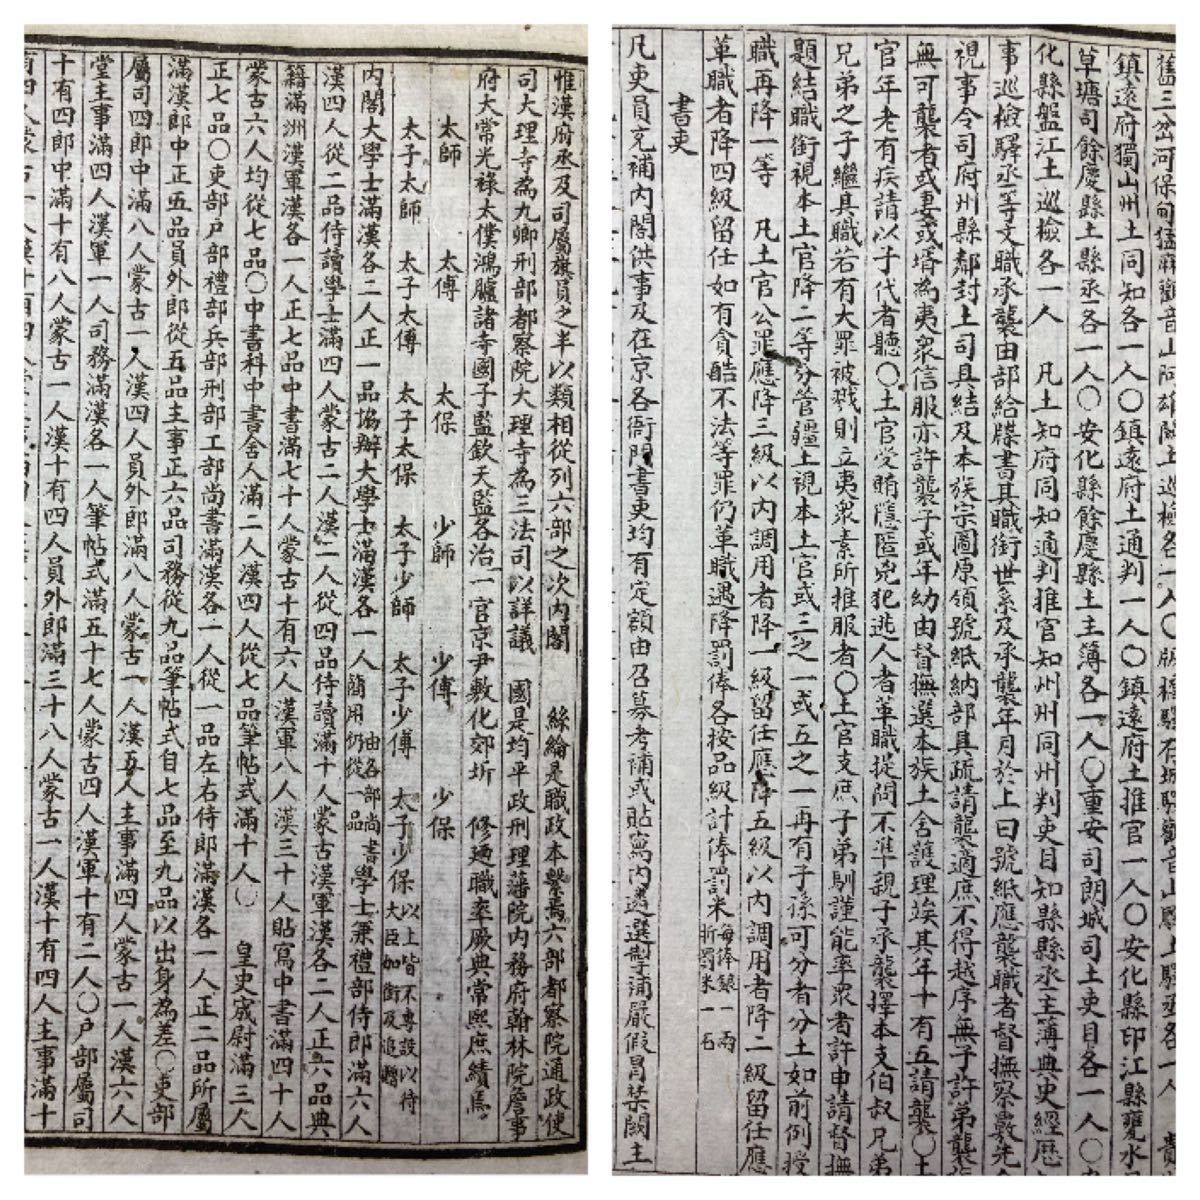 惟漢府丞及司屬旗員之半以類相從列六部之次內閣　絲綸是職政本繫焉六部都察院通政使
司大理寺為九卿刑部都察院大理寺為三法司以詳議　國是均平政刑理藩院內務府翰林院詹事
府大常光祿太僕鴻臚諸寺國子監欽天監各治一官京尹敷化郊圻　修廼職率厥典常熙庶績焉
太師　太傅　太保　少師　少傅　少保
太子太師　太子太傅　太子太保　太子少師　太子少傅　太子少保以上皆不專設以待大臣加銜及追贈
內閣大學士滿漢各二人正一品協辦大學士滿漢各一人由各部尚書簡用仍從一品學士兼禮部侍郎滿六人
漢四人從二品侍讀學士滿四人蒙古二人漢二人從四品侍讀滿十人蒙古漢軍漢各二人正六品典
籍滿洲漢軍漢各一人正七品中書滿七十人蒙古十有六人漢軍八人漢三十人貼寫中書滿四十人
蒙古六人均從七品〇中書科中書舍人滿二人漢四人從七品筆帖式滿十人〇　皇史宬尉滿三人
正七品〇吏部戶部禮部兵部刑部工部尚書滿漢各一人從一品左右侍郎滿漢各一人正二品所屬
滿漢郎中正五品員外郎從五品主事正六品司務從九品筆帖式自七品至九品以出身為差〇吏部
屬司四郎中滿八人蒙古一人漢四人員外郎滿八人蒙古一人漢五人主事滿四人蒙古一人漢六人
堂主事滿四人漢軍一人司務滿漢各一人筆帖式滿五十七人蒙古四人漢軍十有二人〇戶部屬司
十有四郎中滿十有八人蒙古一人漢十有四人員外郎滿三十八人蒙古一人漢十有四人主事滿十
舊三岔河保甸猛麻觀音山阿雄關土巡檢各一人〇
鎮遠府獨山州土同知各一人〇鎮遠府土通判一人〇鎮遠府土推官一人〇安化縣印江縣
草塘司餘慶縣土縣丞各一人〇安化縣餘慶縣土主簿各一人〇重安司朗城司土吏目各一人〇
化縣盤江土巡檢各一人　凡土知府同知通判推官知州州同州判吏目知縣縣丞主簿典史經歷
事巡檢驛丞等文職承襲由部給牒書其職銜世系及承襲年月於上曰號紙應襲職者督撫察覈先令
視事令司府州縣鄰封土司具結及本族宗圖原領號紙納部具疏請襲適庶不得越序無子許弟襲
無可襲者或妻或壻為夷眾信服亦許襲子或年幼由督撫選本族土舍護理竢其年十有五請襲〇土
官年老有疾請以子代者聽〇土官受賄隱匿兇犯逃人者革職提問不準親子承襲擇本支伯叔兄弟
兄弟之子繼其職若有大罪被戮則立夷眾素所推服者〇土官支庶子弟馴謹能率眾者許申請督撫
題結職銜視本土官降二等分管疆土視本土官或三之一或五之一再有子孫可分者分土如前例授
職再降一等　凡土官公罪應降三級以內調用者降一級留任應降五級以內調用者降二級留任應
革職者降四級留任如有貪酷不法等罪仍革職遇降罰俸各按品級計俸罰米每俸銀一兩折罰米一石
書吏
凡吏員充補內閣供事及在京各衙門書吏均有定額由召募考補或貼寫內遴選掣補嚴假冒禁闕主